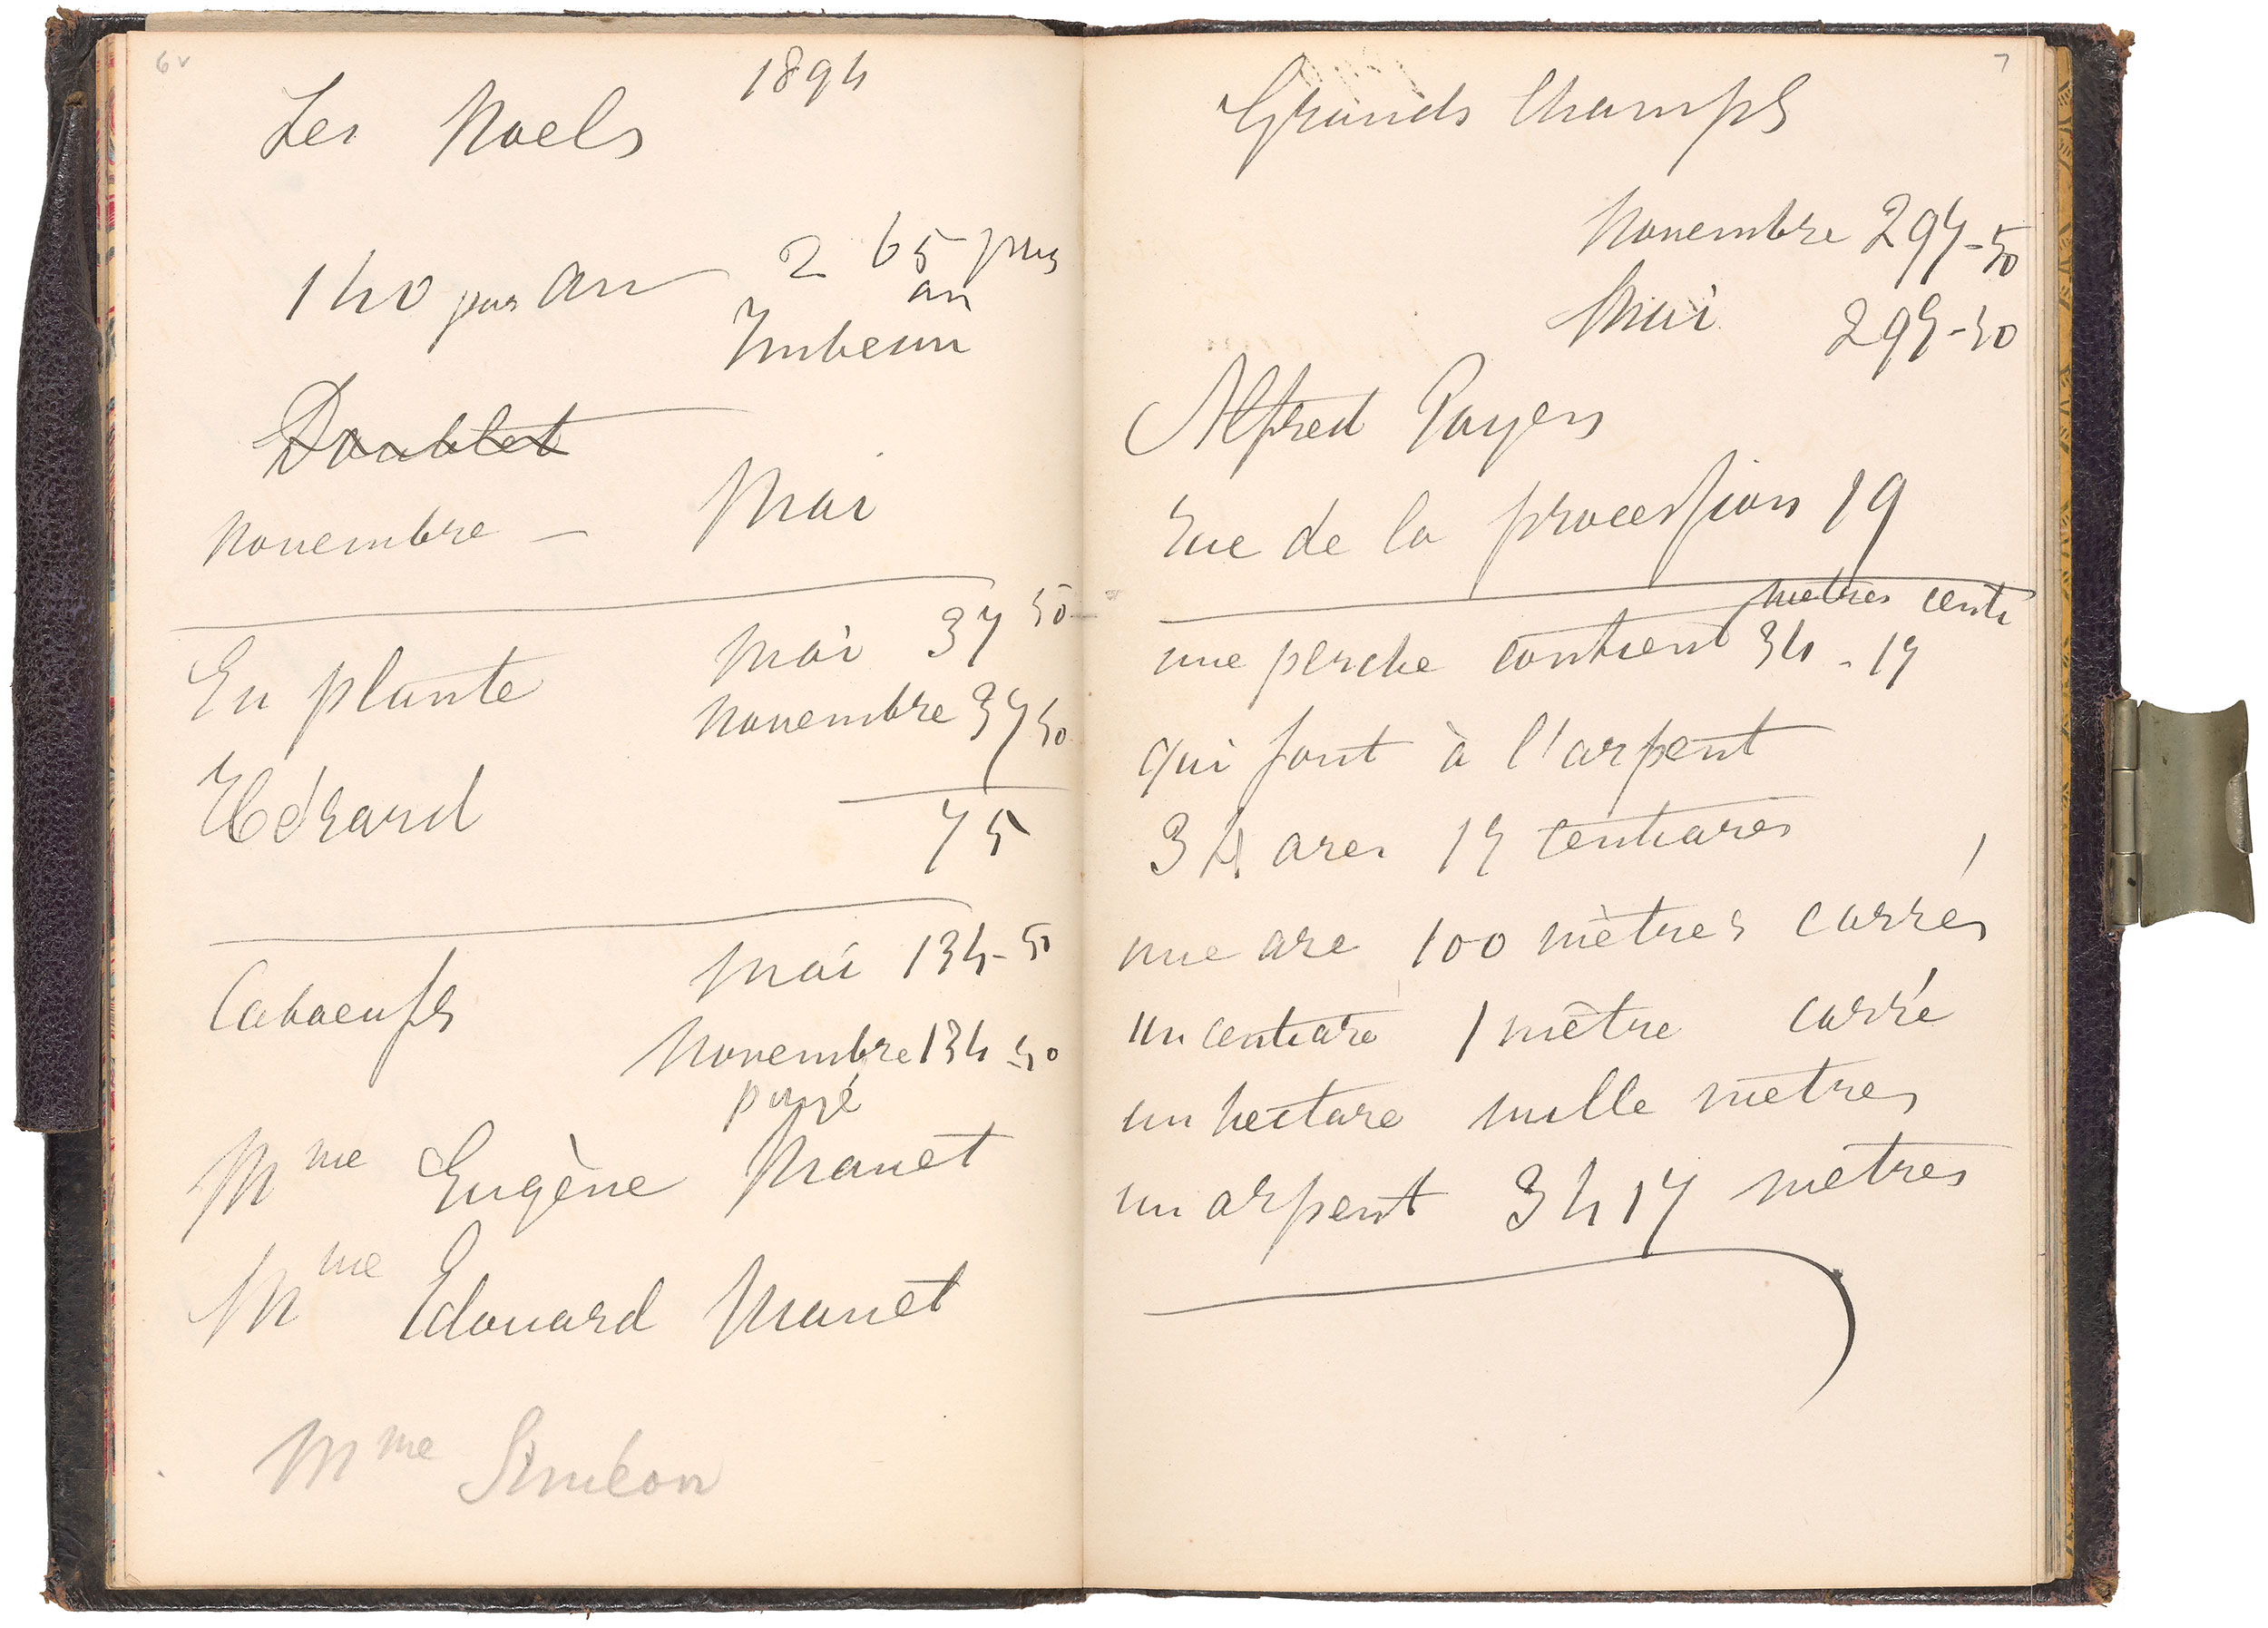 6v
1894
Les Noels
140 par an
2 65 par
an
Imbeun
Doublet
novembre – Mai
En plante
mai 37 50
novembre 37 50
Hérard
75
Caboeufs
mai 134-50
Novembre 134-50
payé
Mme Eugène Manet
Mme Edouard Manet
Mme Siméon
7
Grands Champs
Novembre 297-50
Mai 297-50
Alfred Payen
rue de la procession 19
metres centi
une perche contient 34-17
qui font à l'arpent
34 ares 17 centiares
une are 100 mètres carrés
un centiare 1 mètre carré
un hectare mille mètres
un arpent 3417 mètres